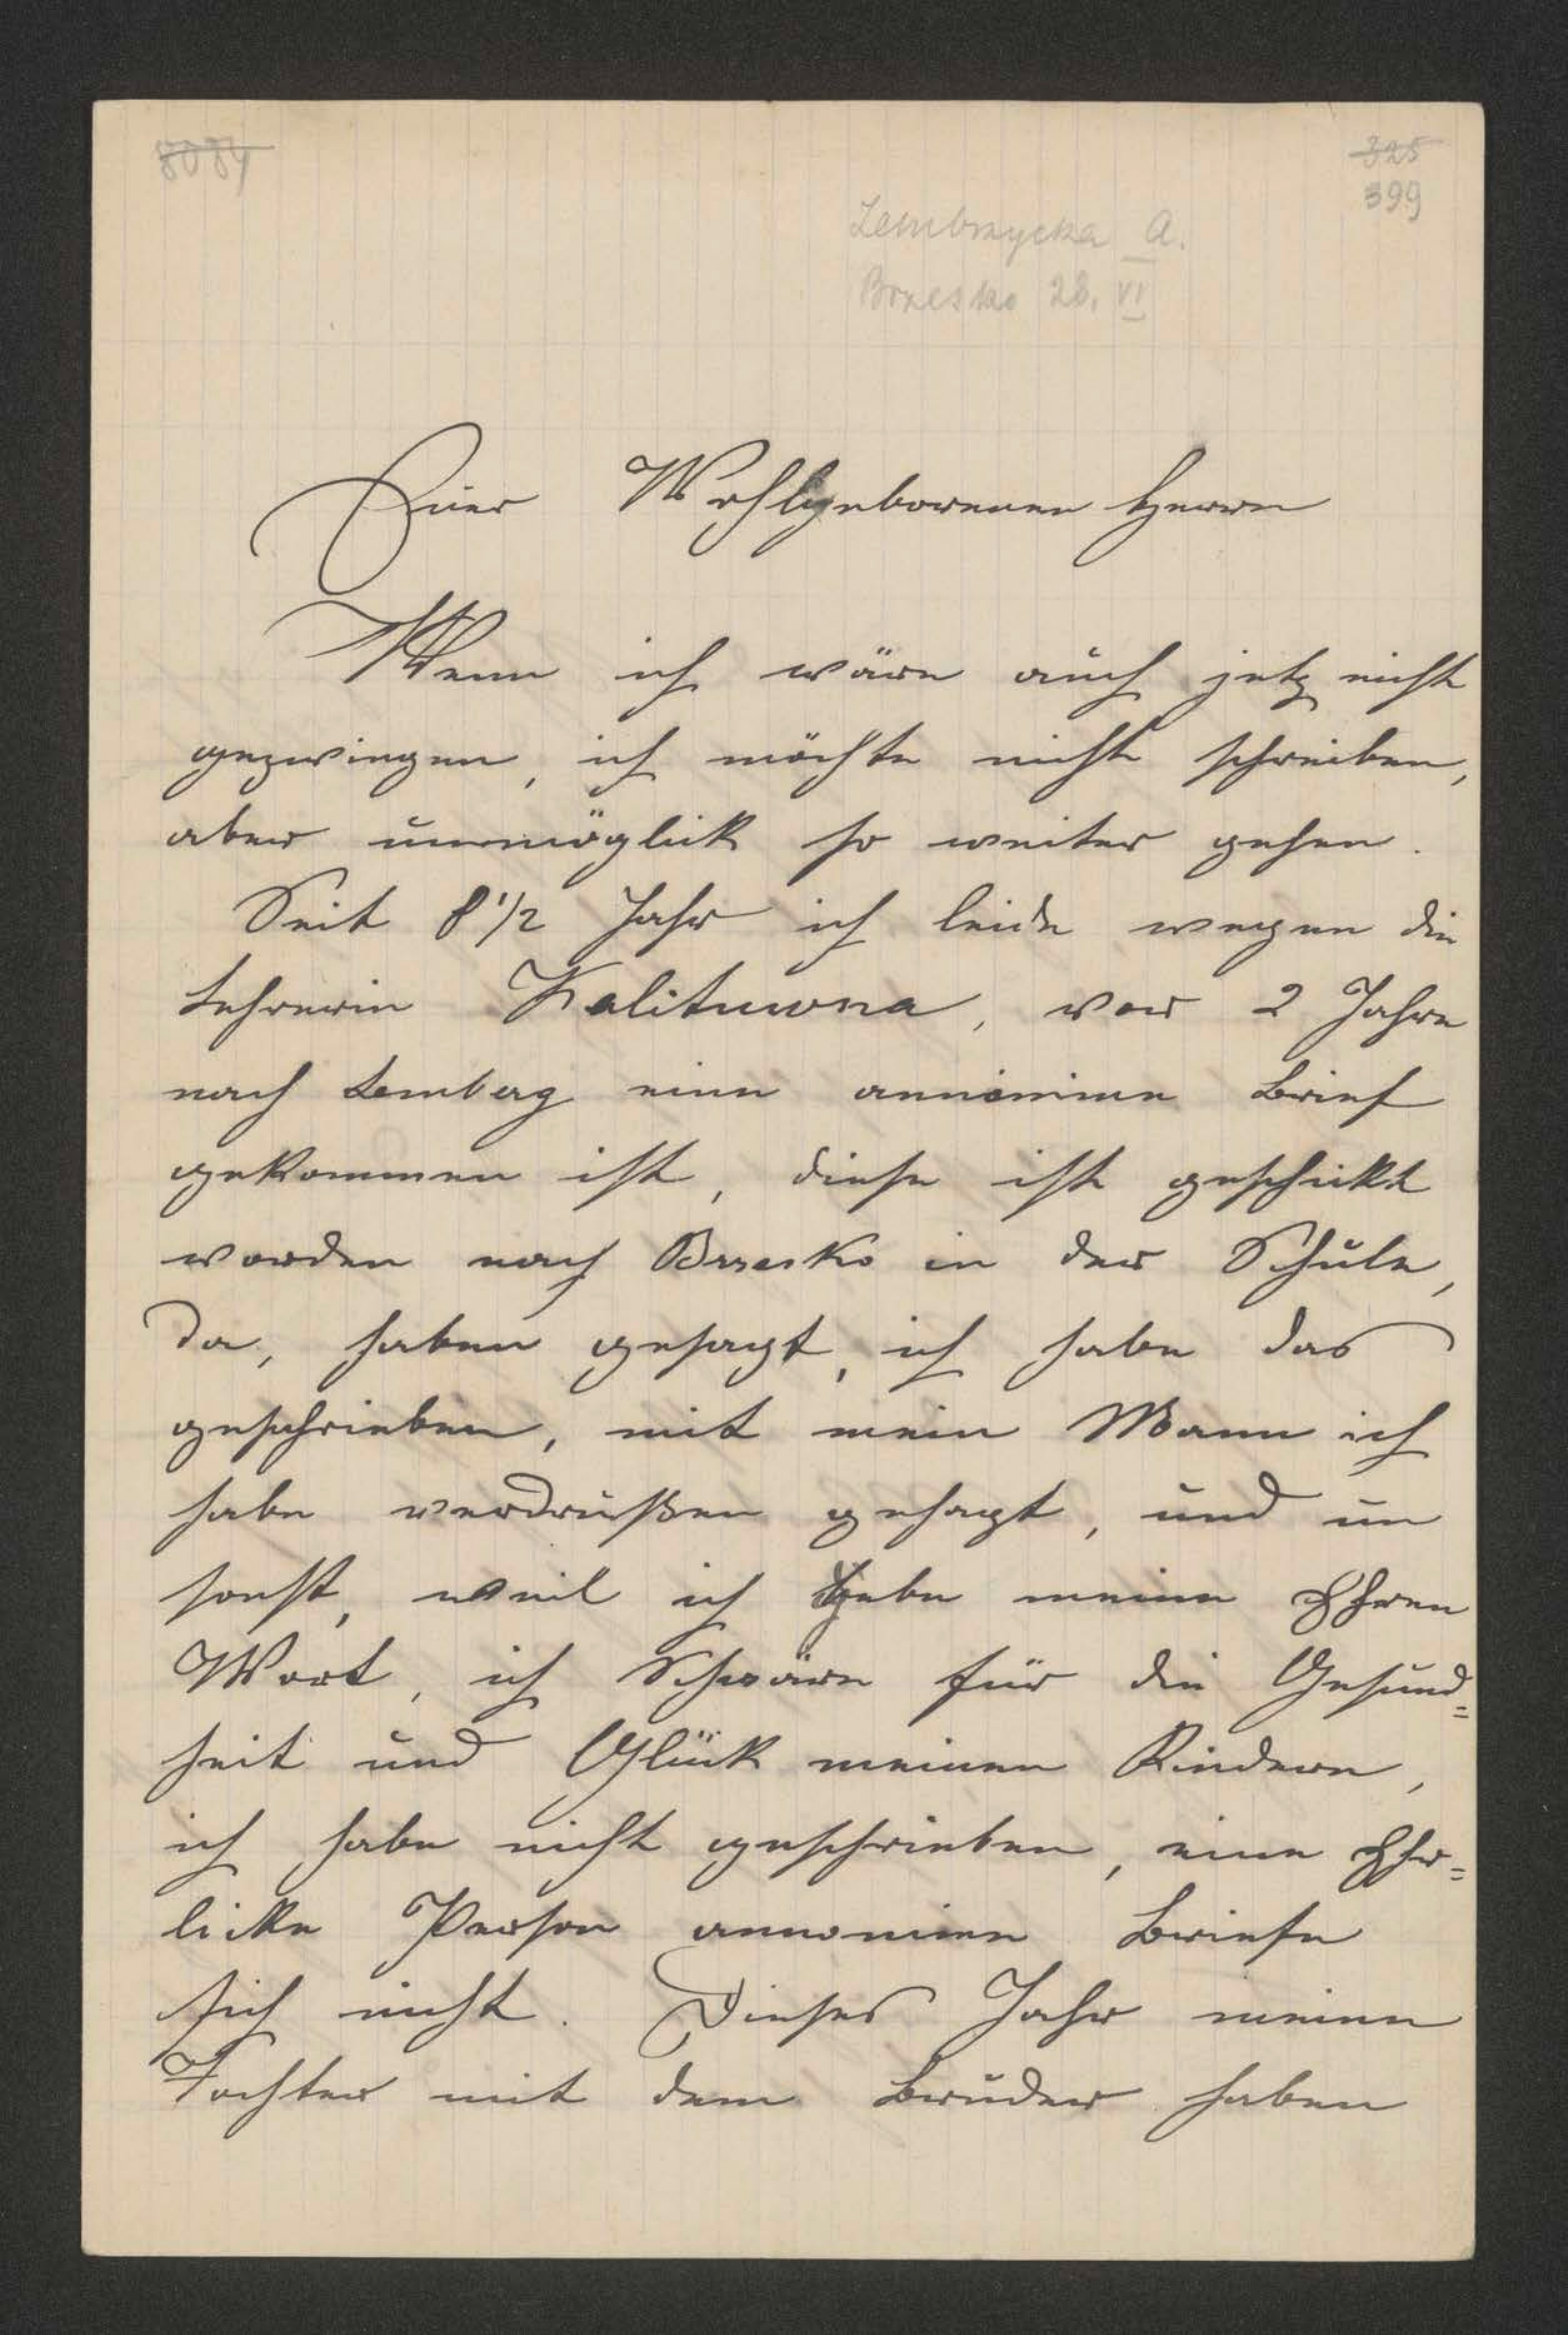 8084
325
399
Zembrzycka A.
Brzesko 28. VI
Euer Wohlgeborenen Herrn
Wenn ich wäre auch jetz nicht
gezwingen, ich möchte nicht schreiben,
aber unmöglich so weiter gehen.
Seit 8 1/2 Jahr ich leide wegen die
Lehrerin Kalituwna, vor 2 Jahre
nach Lemberg eine annimime Brief
gekommen ist, diese ist geschikt
worden nach Brzesko in der Schule,
da, haben gesagt, ich habe das
geschrieben, mit mein Mann ich
habe verdrußen gehagt, und um
sonst, weil ich gebe meine Ehren
Wort, ich Schwäre für die Gesund=
heit und Glück meinen Kindern,
ich habe nicht geschrieben, eine Ehr=
liche Person annonimen Briefe
sich nicht. Dieses Jahr meine
Tochter mit dem Bruder haben